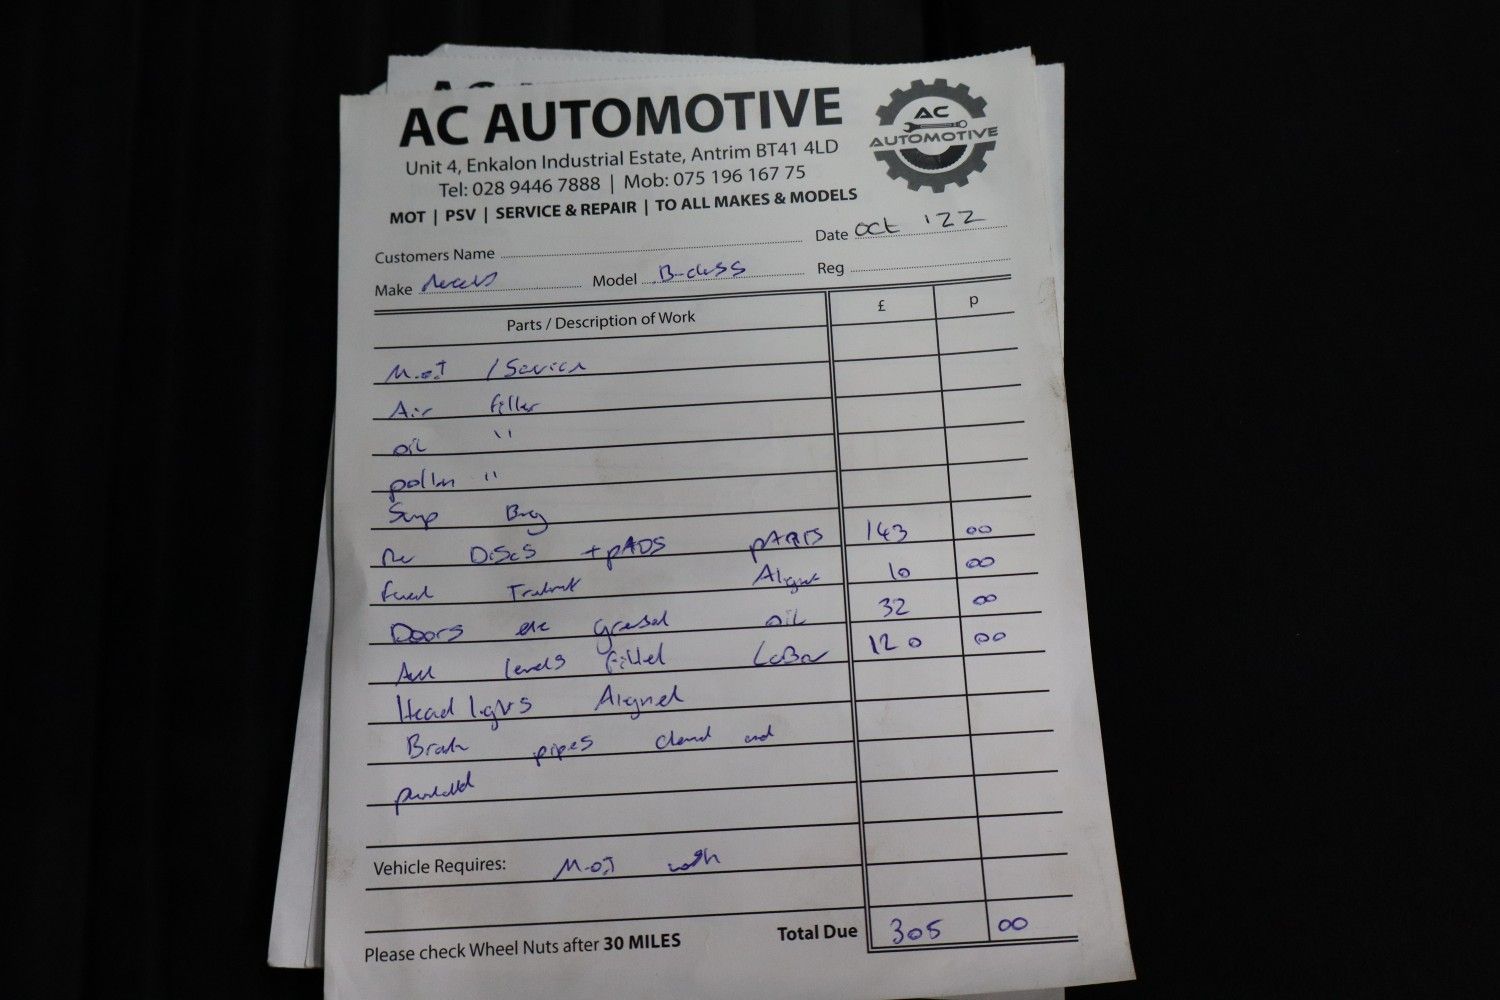 AC AUTOMOTIVE
Unit 4, Enkalon Industrial Estate, Antrim BT41 4LD
Tel: 028 9446 7888 | Mob: 075 196 167 75
MOT | PSV | SERVICE & REPAIR | TO ALL MAKES & MODELS
AC
AUTOMOTIVE
Customers Name Date Oct '22
Make Model B-class Reg
Parts / Description of Work £ p
M.O.T / Service
Air filter
oil "
pollen "
Sump
DiSCS + PADS PARTS 143 00
10 00
Doors etc greased oil 32 00
All levels filled LaBor 120 00
Head lights Aligned
Brake pipes cleaned and
Vehicle Requires: M.O.T wash
Please check Wheel Nuts after 30 MILES Total Due 305 00